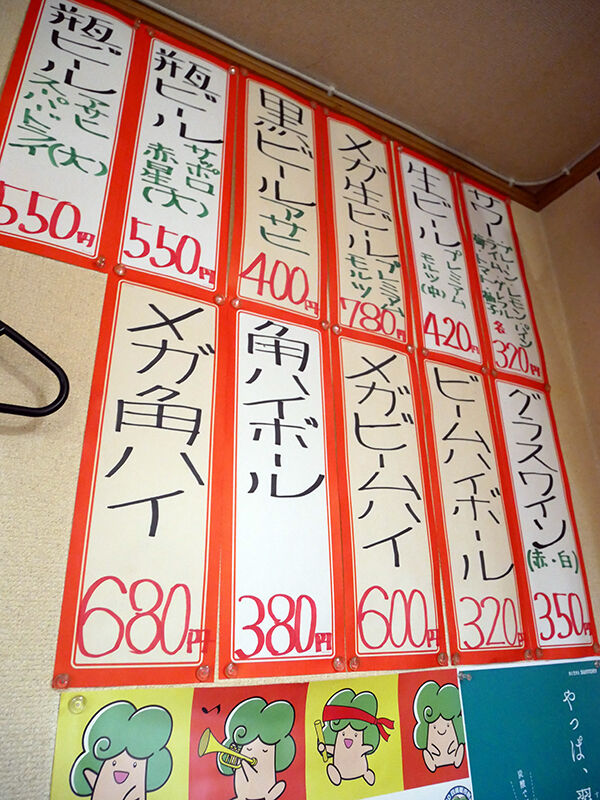 サワー
プレーン
レモン
320円
生ビール
プレミアム
モルツ(中)
420円
メガ生ビール
プレミアム
モルツ
780円
黒ビール
アサヒ
400円
瓶ビール
サッポロ
赤星(大)
550円
瓶ビール
アサヒ
スーパードライ(大)
550円
グラスワイン
(赤・白)
350円
ビームハイボール
320円
メガビームハイ
600円
角ハイボール
380円
メガ角ハイ
680円
やっぱ、